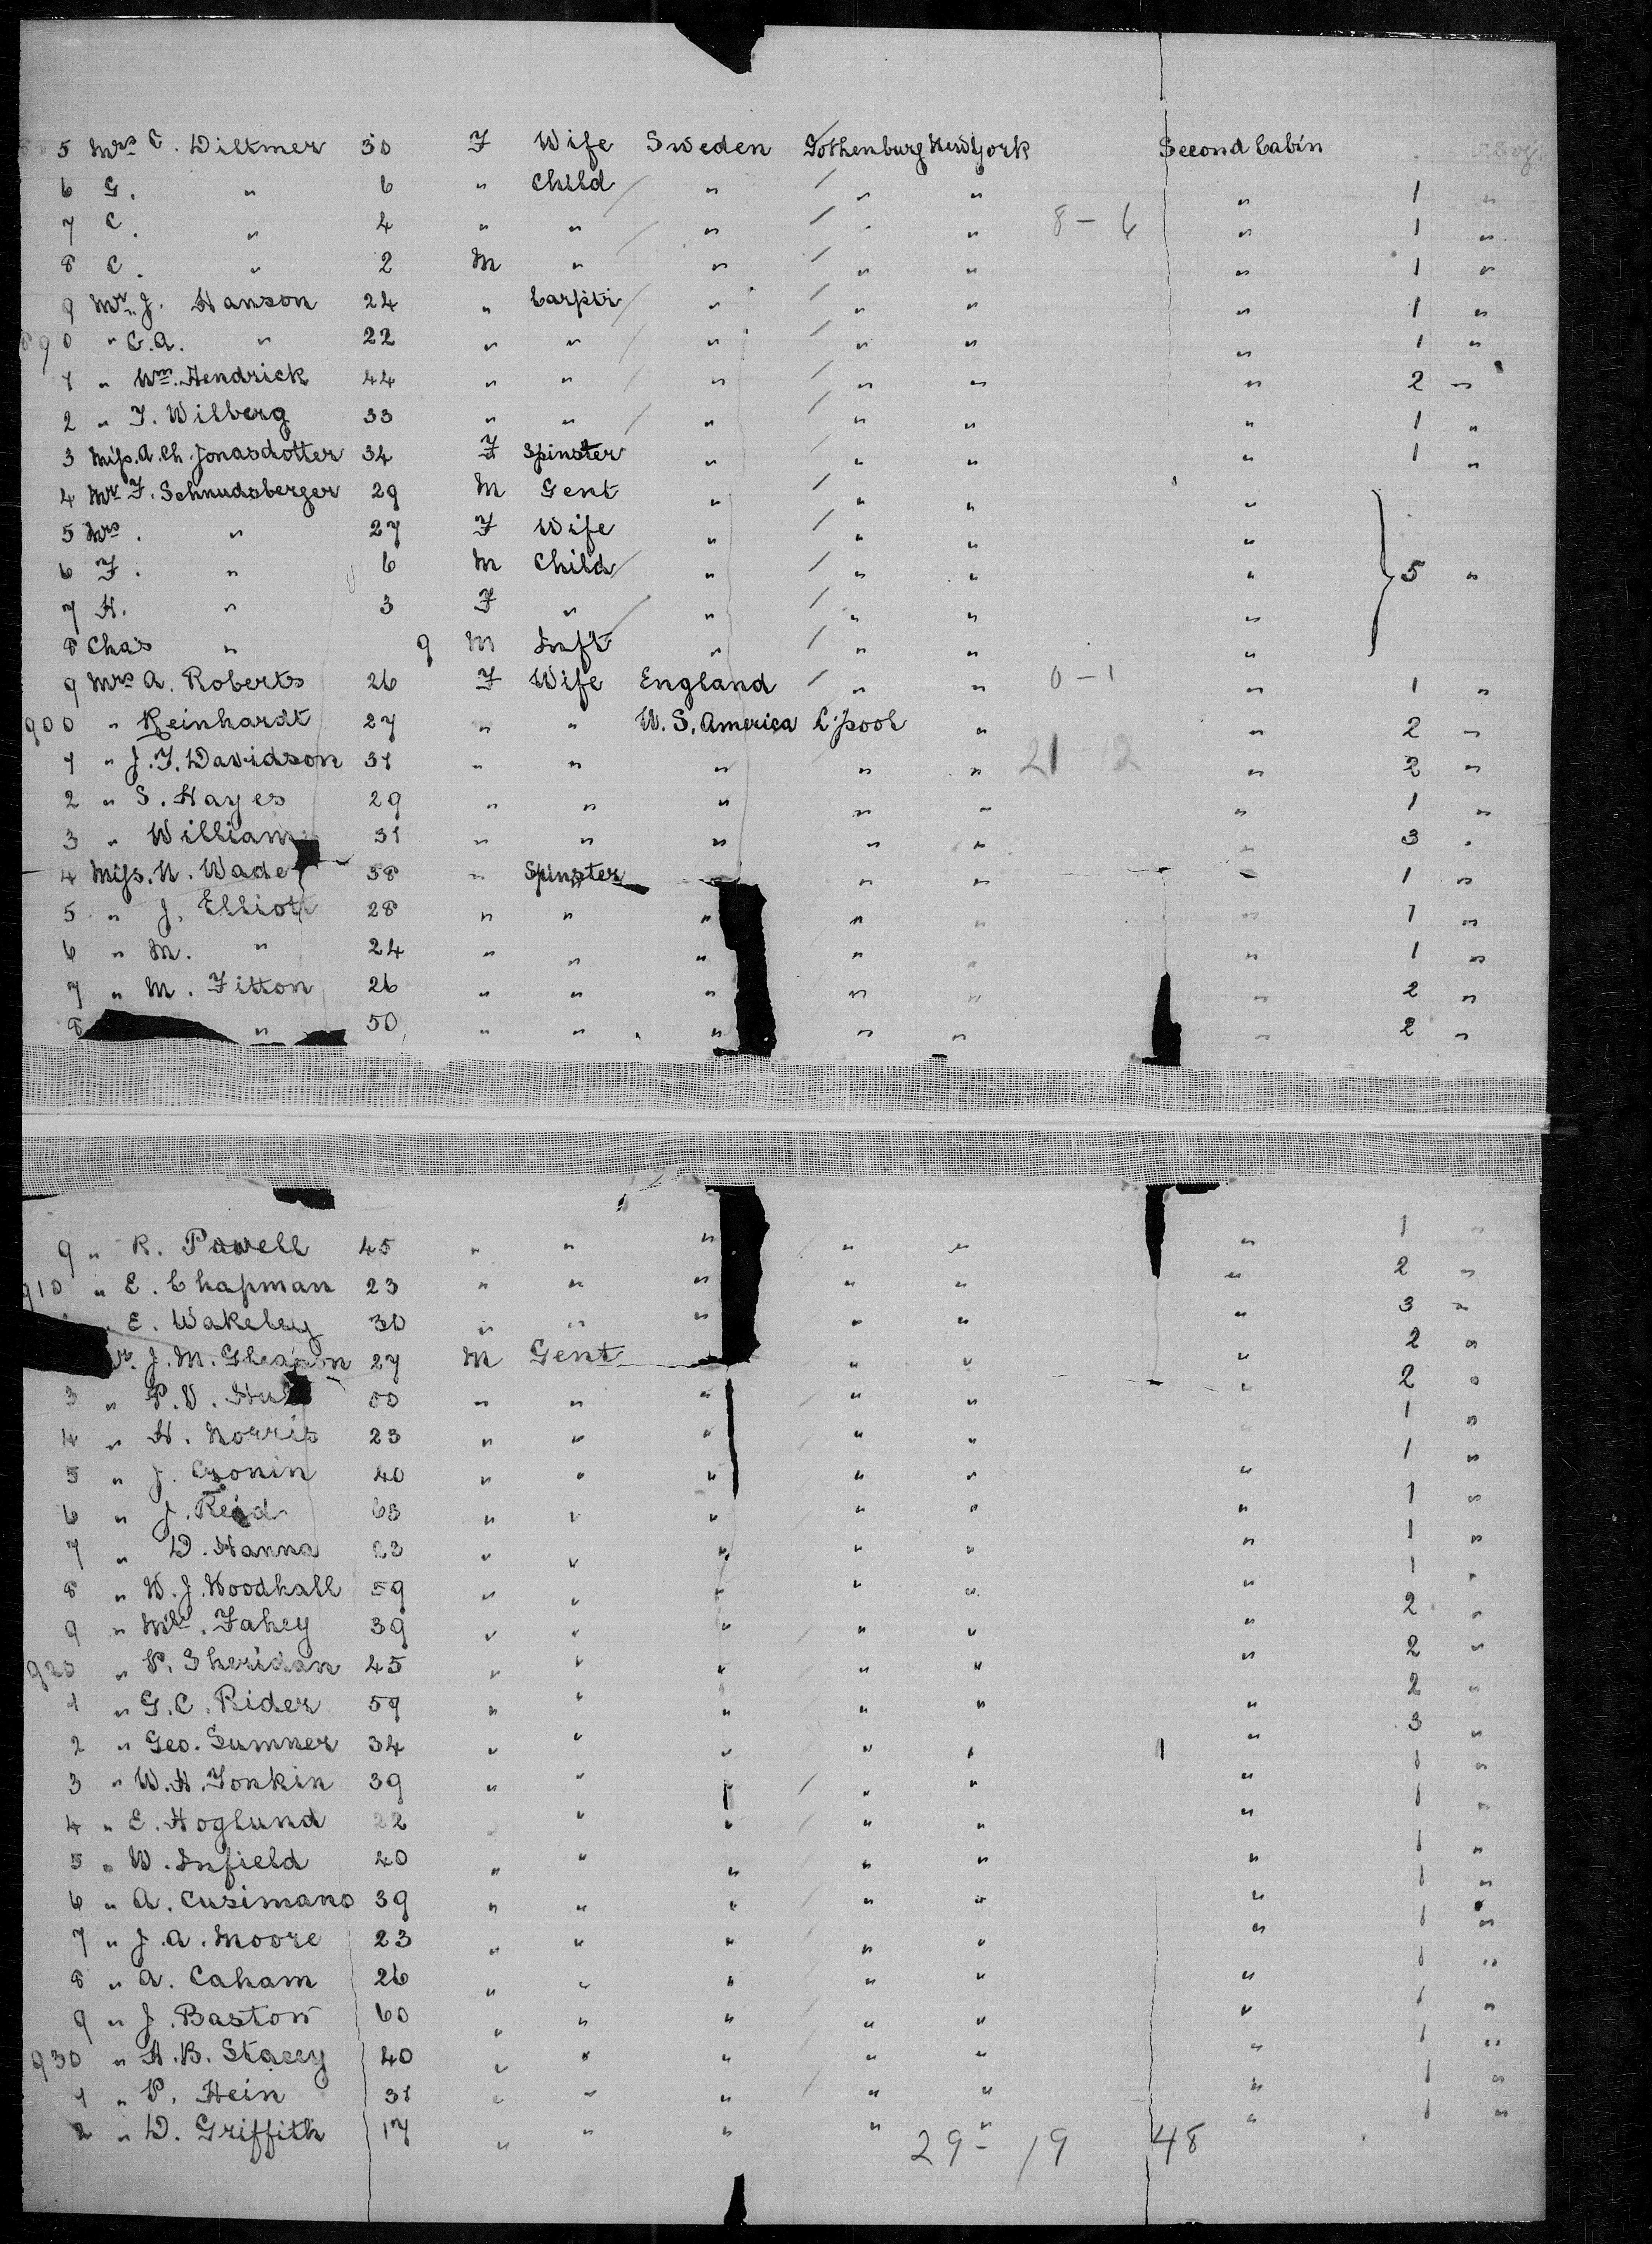 5 Mrs C. Wiltmer 30 F Wife Sweden Gothenburg New York Second Cabin
6 G. " 6 " Child " " " " 1 "
7 C. " 4 " " " " " 8 - 6 " 1 "
8 C. " 2 M " " " " " 1 "
9 Mr. J. Hanson 24 " Carptr " " " " 1 "
890 " C.A. " 22 " " " " " " 1 "
1 " Wm. Hendrick 44 " " " " " " 2 "
2 " F. Wilberg 33 " " " " " " 1 "
3 Miss. A. Ch. Jonasdotter 34 F Spinster " " " " 1 "
4 Mr F. Schnudsberger 29 M Gent " " " "
5 Mrs. " 27 F Wife " " " "
6 F. " 6 M Child " " " " 5 "
7 H. " 3 F " " " " "
8 Chas " 9 M Inft " " " "
9 Mrs A. Roberts 26 F Wife England " " 0 - 1 " 1 "
900 " Reinhardt 27 " " U.S. America L'pool " " 2 "
1 " J.F. Davidson 31 " " " " " 21 - 12 " 2 "
2 " S. Hayes 29 " " " " " " 1 "
3 " William 31 " " " " " " 3 "
4 Miss. N. Wade 38 " Spinster " " " " 1 "
5 " J. Elliott 28 " " " " " " 1 "
6 " M. " 24 " " " " " " 1 "
7 " M. Fitton 26 " " " " " " 2 "
8 " 50 " " " " " " 2 "
9 " R. Powell 45 " " " " " " 1 "
910 " E. Chapman 23 " " " " " " 2 "
" E. Wakeley 30 " " " " " " 3 "
J.M. Gleason 27 M Gent " " " 2 "
3 " P.V. " " " " " " 2 "
4 " H. Norris 23 " " " " " " 1 "
5 " J. Cronin 40 " " " " " " 1 "
6 " J. Reid 63 " " " " " " 1 "
7 " D. Hanna 23 " " " " " " 1 "
8 " W.J. Woodhall 59 " " " " " " 1 "
9 " Ml. Fahey 39 " " " " " " 2 "
920 " P. Sheridan 45 " " " " " " 2 "
1 " G.C. Rider 59 " " " " " " 2 "
2 " Geo. Sumner 34 " " " " " " 3 "
3 " W.H. Tonkin 39 " " " " " " 1 "
4 " E. Hoglund 22 " " " " " " 1 "
5 " W. Infield 40 " " " " " " 1 "
6 " A. Cusimano 39 " " " " " " 1 "
7 " J.A. Moore 23 " " " " " " 1 "
8 " A. Caham 26 " " " " " " 1 "
9 " J. Baston 60 " " " " " " 1 "
930 " H.B. Stacey 40 " " " " " " 1 "
1 " P. Hein 31 " " " " " " 1 "
2 " D. Griffith 17 " " " " " " 1 "
29 - 19 48